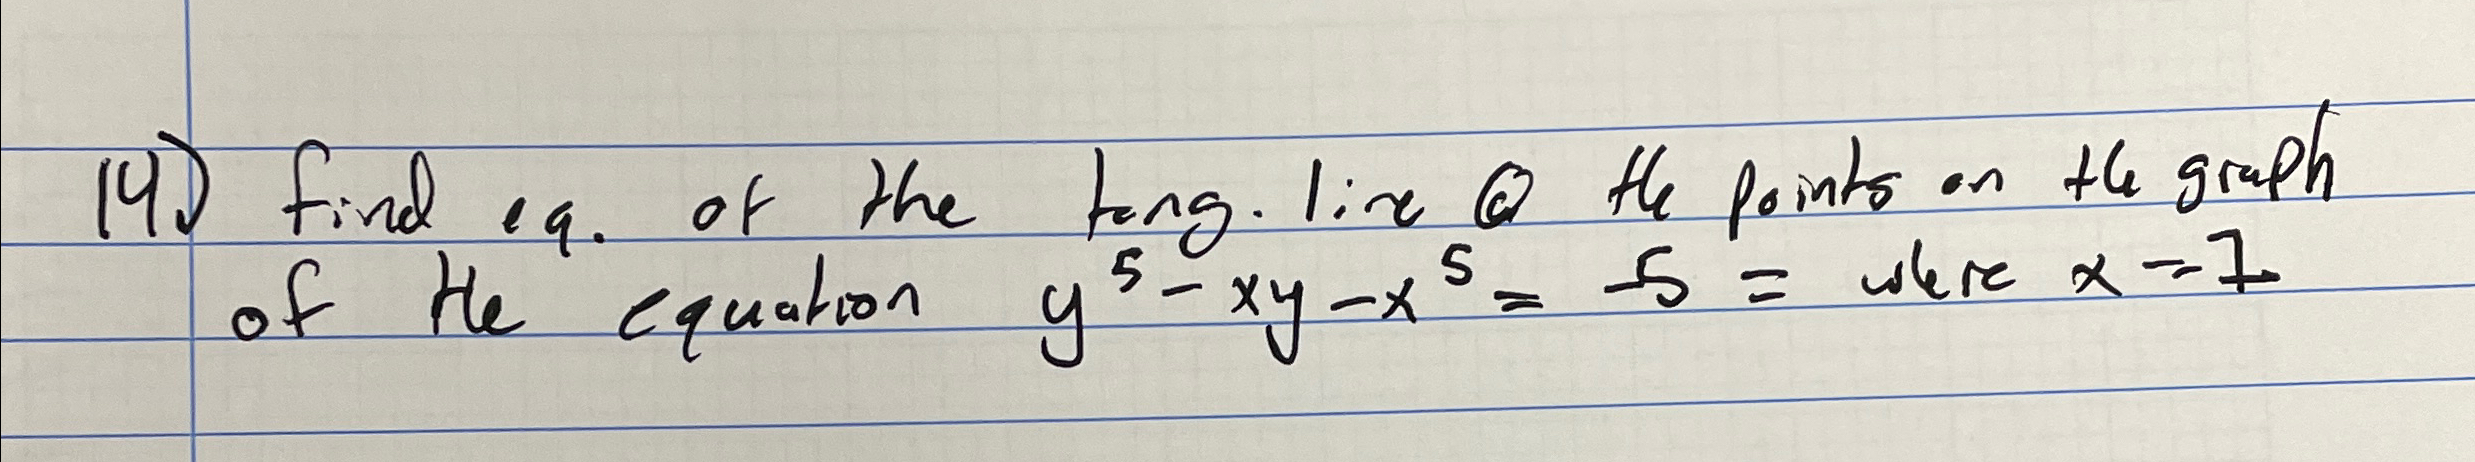 14) find eq. of the tang. line @ the points on the graph
of the equation y⁵ - xy - x⁵ = -5 = where x = 1